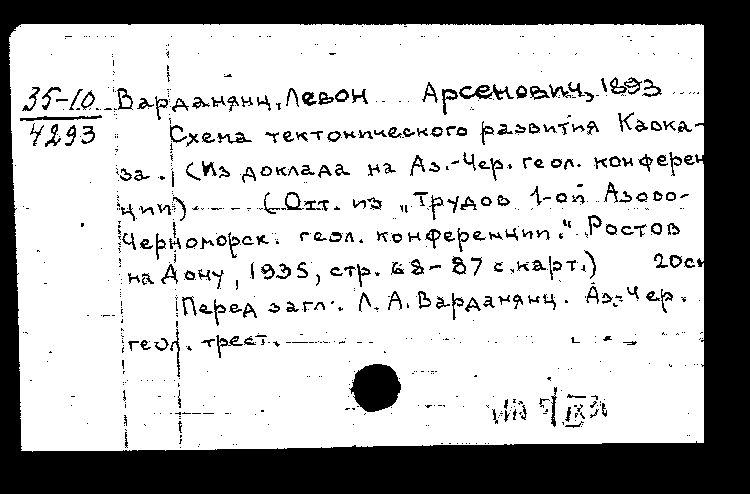 35-10 Варданянц, Левон Арсенович, 1893
4293 Схема тектонического развития Кавка-
за. (Из доклада на Аз.-Чер. геол. конферен
ции) (Отт. из „Трудов 1-ой Азово-
Черноморск. геол. конференции." Ростов
на Дону, 1935, стр. 68-87 с карт.) 20см
Перед загл. Л. А. Варданянц. Аз.-Чер.
геол. трест.
IX